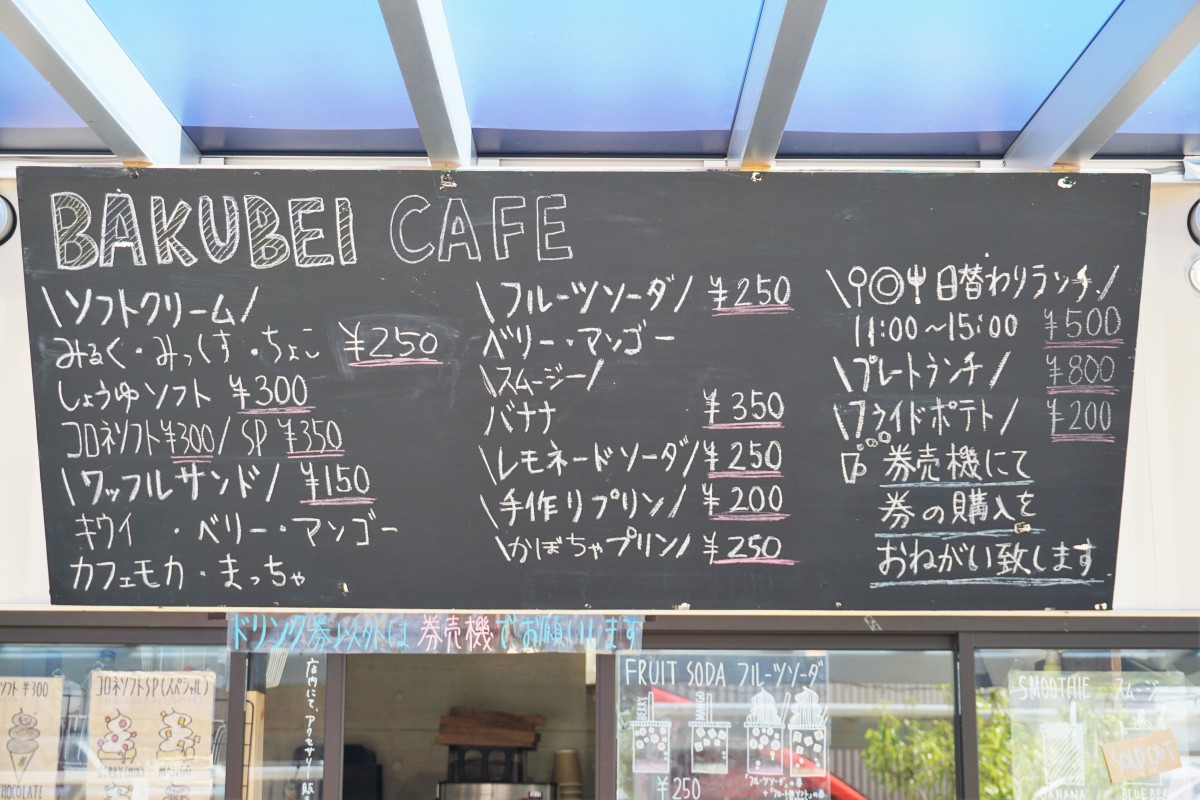 BAKUBEI CAFE
\ソフトクリーム/
みるく・みっくす・ちょこ ¥250
しょうゆソフト ¥300
コロネソフト¥300/SP ¥350
\ワッフルサンド/ ¥150
キウイ・ベリー・マンゴー
カフェモカ・まっちゃ
\フルーツソーダ/ ¥250
ベリー・マンゴー
\スムージー/
バナナ ¥350
\レモネードソーダ/ ¥250
\手作りプリン/ ¥200
\かぼちゃプリン/ ¥250
\日替わりランチ/
11:00~15:00 ¥500
\プレートランチ/ ¥800
\フライドポテト/ ¥200
券売機にて
券の購入を
おねがい致します
ドリンク券以外は券売機でお願いします
ソフト ¥300
CHOCOLATE
コロネソフトSP(スペシャル)
MANGO
店内にて、アクセサリー販
FRUIT SODA フルーツソーダ
BERRY
MANGO
¥250
SMOOTHIE スムージー
SOLD OUT
BANANA